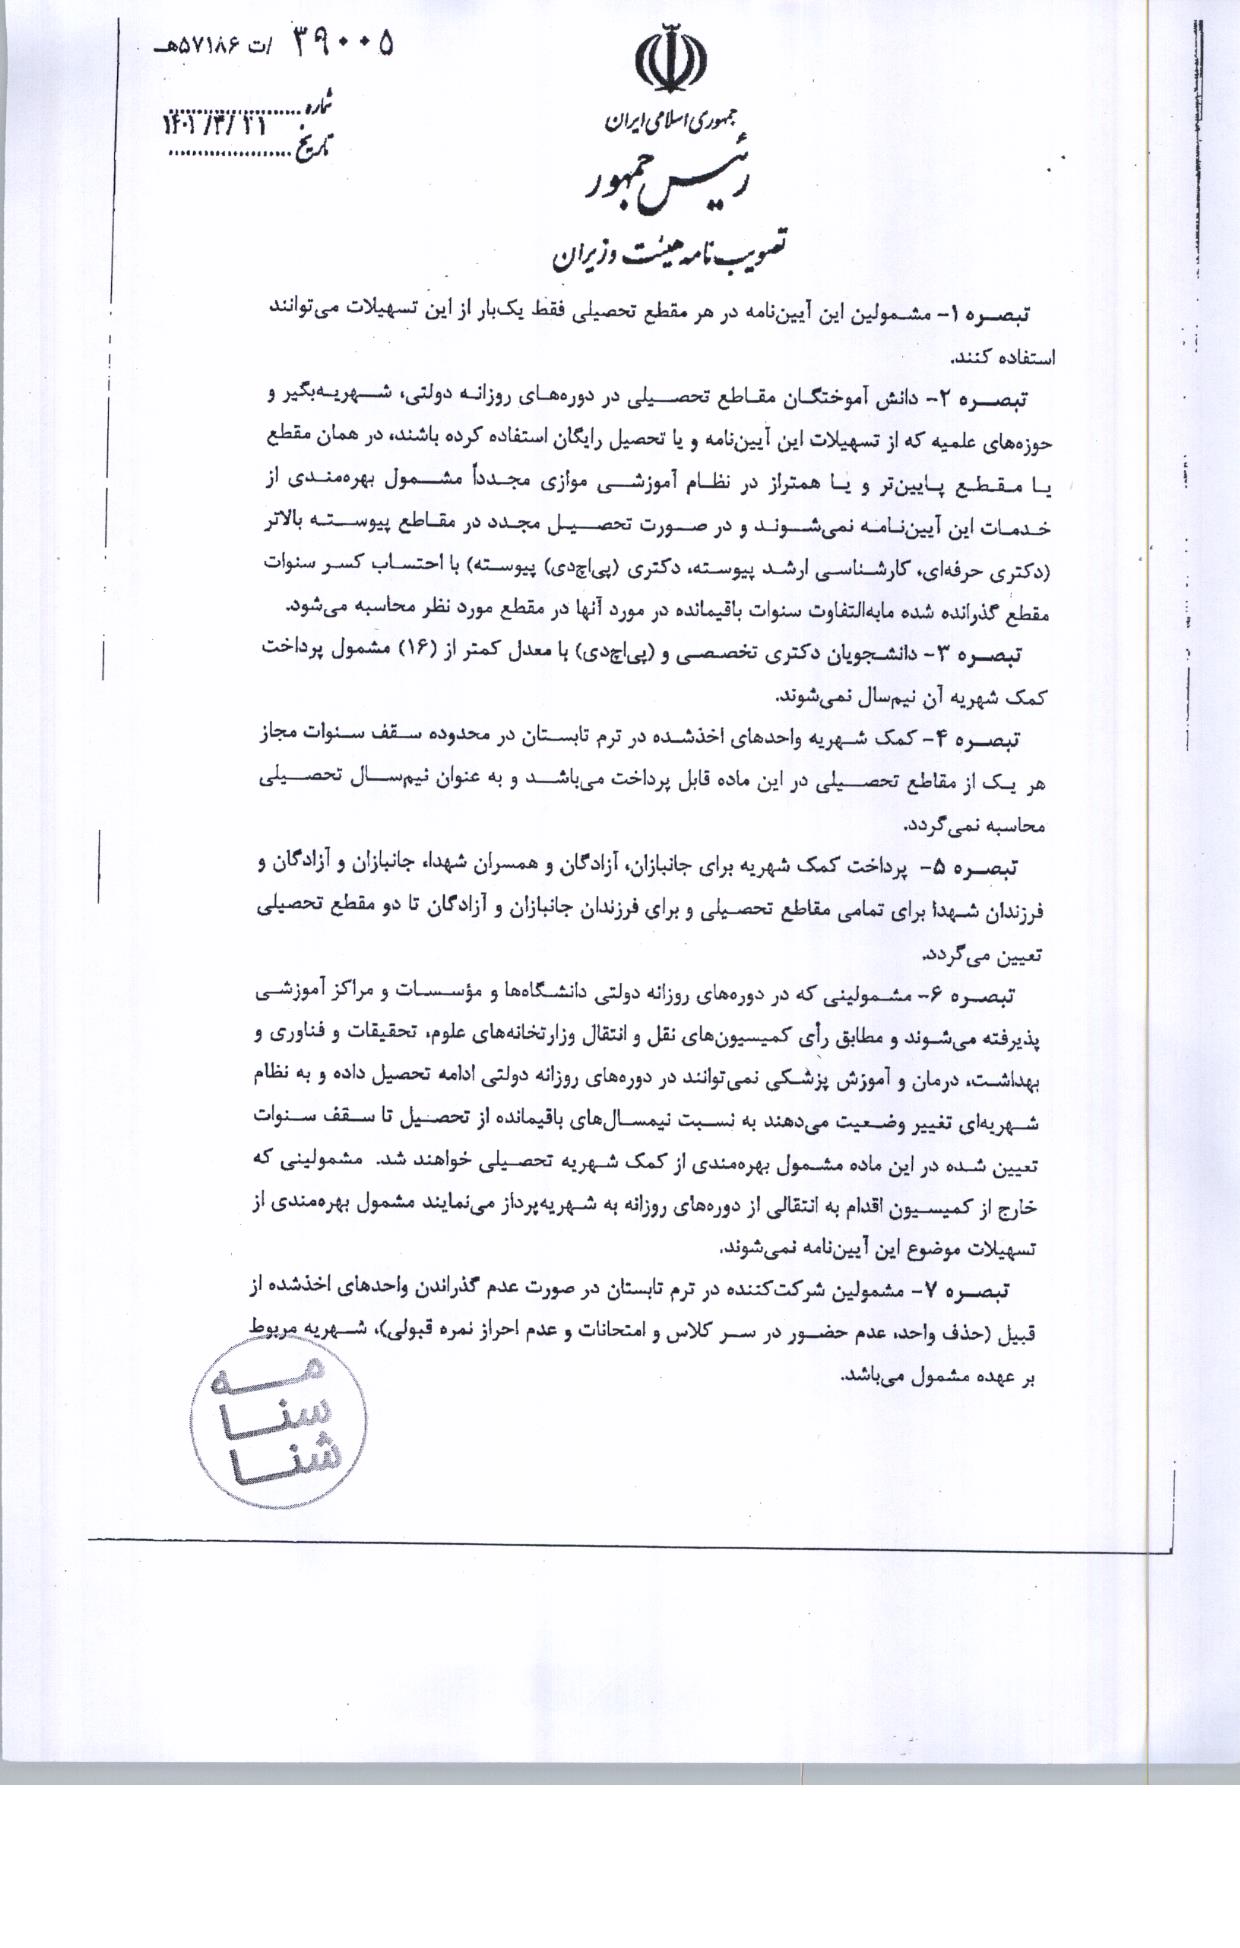 ۳۹۰۰۵ /ت ۵۷۱۸۶هـ
جمهوری اسلامی ایران
رئیس جمهور
تصویب نامه هیئت وزیران
شماره
۱۴۰۲/۳/۲۱
تاریخ
تبصره ۱- مشمولین این آیین‌نامه در هر مقطع تحصیلی فقط یک‌بار از این تسهیلات می‌توانند
استفاده کنند.
تبصره ۲- دانش آموختگان مقاطع تحصیلی در دوره‌های روزانه دولتی، شهریه‌بگیر و
حوزه‌های علمیه که از تسهیلات این آیین‌نامه و یا تحصیل رایگان استفاده کرده باشند، در همان مقطع
یا مقطع پایین‌تر و یا همتراز در نظام آموزشی موازی مجدداً مشمول بهره‌مندی از
خدمات این آیین‌نامه نمی‌شوند و در صورت تحصیل مجدد در مقاطع پیوسته بالاتر
(دکتری حرفه‌ای، کارشناسی ارشد پیوسته، دکتری (پی‌اچ‌دی) پیوسته) با احتساب کسر سنوات
مقطع گذرانده شده مابه‌التفاوت سنوات باقیمانده در مورد آنها در مقطع مورد نظر محاسبه می‌شود.
تبصره ۳- دانشجویان دکتری تخصصی و (پی‌اچ‌دی) با معدل کمتر از (۱۶) مشمول پرداخت
کمک شهریه آن نیم‌سال نمی‌شوند.
تبصره ۴- کمک شهریه واحدهای اخذشده در ترم تابستان در محدوده سقف سنوات مجاز
هر یک از مقاطع تحصیلی در این ماده قابل پرداخت می‌باشد و به عنوان نیم‌سال تحصیلی
محاسبه نمی‌گردد.
تبصره ۵- پرداخت کمک شهریه برای جانبازان، آزادگان و همسران شهدا، جانبازان و آزادگان و
فرزندان شهدا برای تمامی مقاطع تحصیلی و برای فرزندان جانبازان و آزادگان تا دو مقطع تحصیلی
تعیین می‌گردد.
تبصره ۶- مشمولینی که در دوره‌های روزانه دولتی دانشگاه‌ها و مؤسسات و مراکز آموزشی
پذیرفته می‌شوند و مطابق رأی کمیسیون‌های نقل و انتقال وزارتخانه‌های علوم، تحقیقات و فناوری و
بهداشت، درمان و آموزش پزشکی نمی‌توانند در دوره‌های روزانه دولتی ادامه تحصیل داده و به نظام
شهریه‌ای تغییر وضعیت می‌دهند به نسبت نیمسال‌های باقیمانده از تحصیل تا سقف سنوات
تعیین شده در این ماده مشمول بهره‌مندی از کمک شهریه تحصیلی خواهند شد. مشمولینی که
خارج از کمیسیون اقدام به انتقالی از دوره‌های روزانه به شهریه‌پرداز می‌نمایند مشمول بهره‌مندی از
تسهیلات موضوع این آیین‌نامه نمی‌شوند.
تبصره ۷- مشمولین شرکت‌کننده در ترم تابستان در صورت عدم گذراندن واحدهای اخذشده از
قبیل (حذف واحد، عدم حضور در سر کلاس و امتحانات و عدم احراز نمره قبولی)، شهریه مربوط
بر عهده مشمول می‌باشد.
مه
سنا
شنا